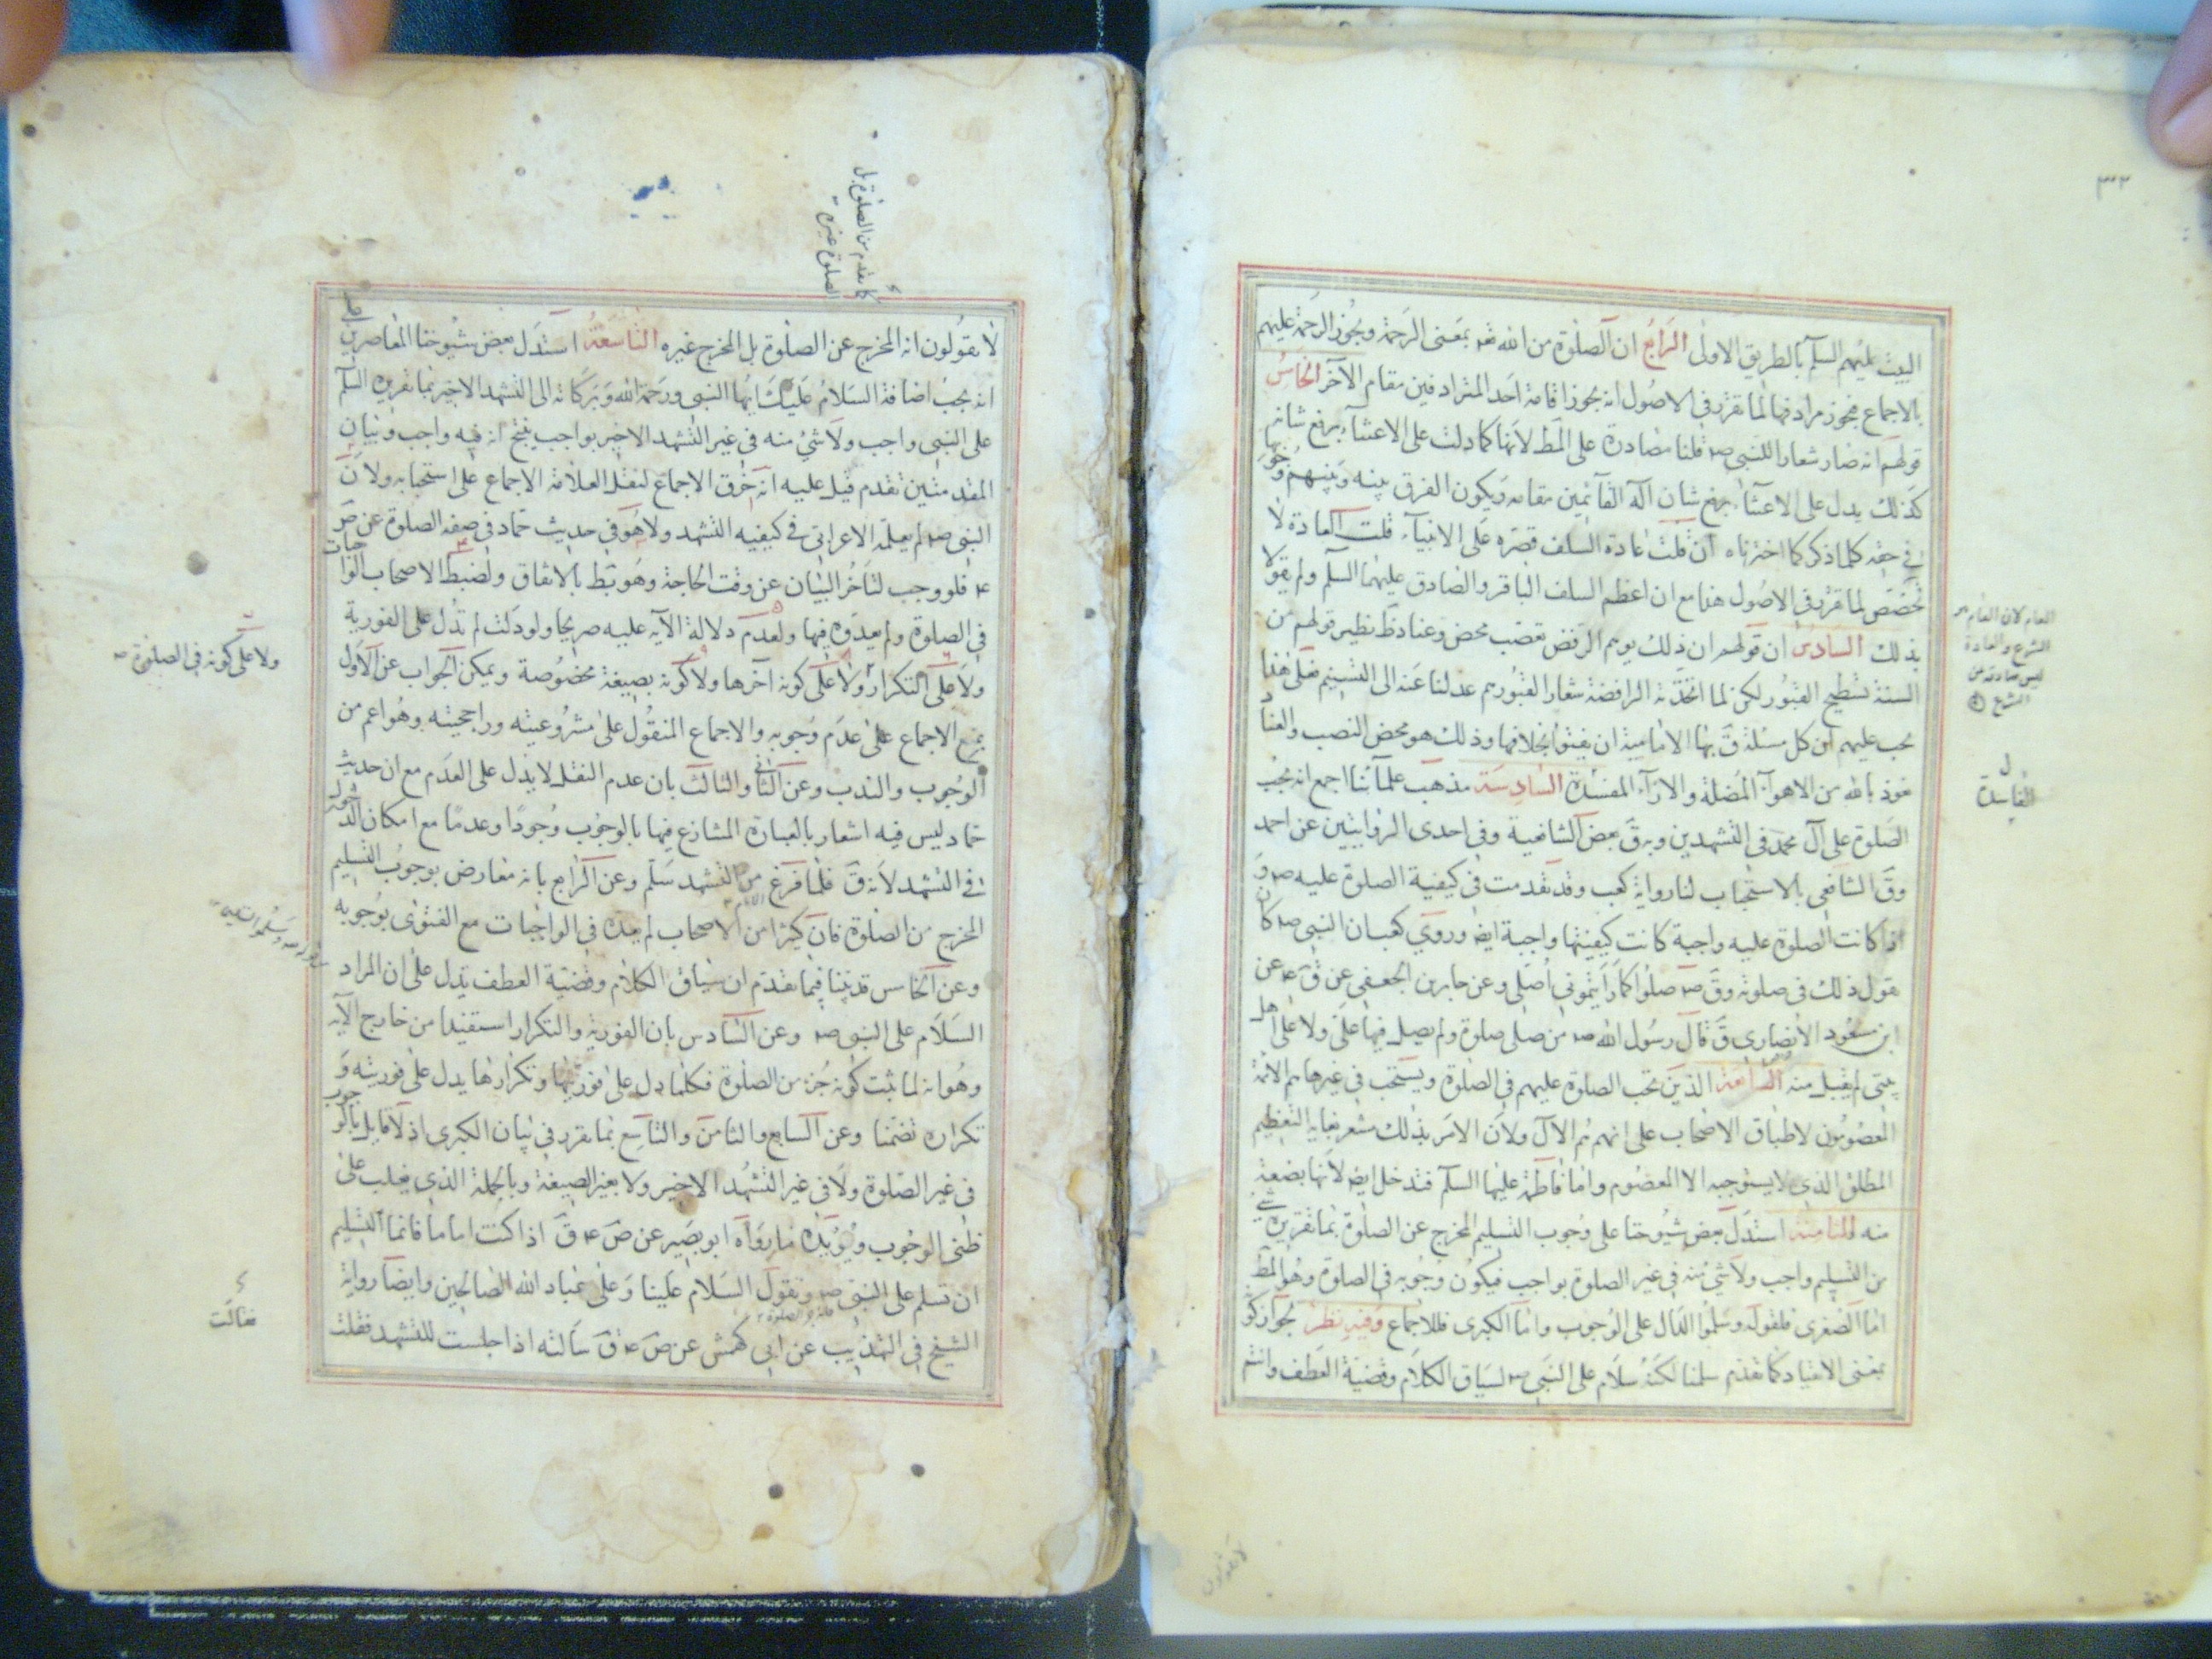 ٣٢
البيت عليهم السلم بالطريق الاولى الرابع ان الصلوة من الله تعه بمعنى الرحمة ويجوز الرحمة عليهم
بالاجماع فيجوز مرادفها لما تقرر في الاصول انه يجوز اقامة احد المترادفين مقام الآخر الخامس
قولهم انه صار شعارا للنبي صه قلنا مصادرة على المط لانها كما دلت على الاعتناء برفع شانه
كذلك يدل على الاعتناء برفع شان آله القائمين مقامه ويكون الفرق بينه وبينهم وجوبها
في حقه كلما ذكر كما اخترناه ان قلت عادة السلف قصره على الانبياء قلت العادة لا
تخصص لما تقرر في الاصول هذا مع ان اعظم السلف الباقر والصادق عليهما السلم ولم يقولا
بذلك السادس ان قولهم ان ذلك يوهم الرفض تعصب محض وعناد ظ نظير قولهم من
السنة تسطيح القبور لكن لما اتخذته الرافضة شعار القبورهم عدلنا عنه الى التسنيم فعلى هذا
يجب عليهم ان كل مسئلة ق بها الامامية ان يفتوا بخلافها وذلك هو محض النصب والعناد
نعوذ بالله من الاهواء المضلة والاراء المفسدة السادسة مذهب علمائنا اجمع انه يجب
الصلوة على آل محمد في التشهدين وبه ق بعض الشافعية وفي احدى الروايتين عن احمد
وق الشافعي بالاستحباب لنا رواية كعب وقد تقدمت في كيفية الصلوة عليه صه و
اذا كانت الصلوة عليه واجبة كانت كيفيتها واجبة ايض وروي كعب ان النبي صه كان
يقول ذلك في صلوته وق صه صلوا كما رايتموني اصلى وعن جابر بن الجعفي عن ق ع عن
ابن مسعود الانصاري ق قال رسول الله صه من صلى صلوة ولم يصل فيها على ولا على اهل
بيتى لم يقبل منه السابعة الذين تجب الصلوة عليهم في الصلوة ويستحب في غيرها هم الائمة
المعصومون لاطباق الاصحاب على انهم هم الآل ولان الامر بذلك مشعر بغاية التعظيم
المطلق الذي لا يستوجبه الا المعصوم واما فاطمة عليها السلم فتدخل ايض لانها بضعة
منه الثامنة استدل بعض شيوخنا على وجوب التسليم المخرج عن الصلوة بما تقريره شيء
من التسليم واجب ولا شئ منه في غير الصلوة بواجب فيكون وجوبه في الصلوة وهو المط
اما الصغرى فلقوله وسلموا الدال على الوجوب واما الكبرى فللاجماع وفيه نظر بجواز كونه
بمعنى الانقياد كما تقدم سلمنا لكنه سلام على النبي صه لسياق الكلام وقضية العطف وانتم
العام لان العام
الشرع والعادة
ليس صادقة من
الشرع
الفاسدة
لا يقولون
لا يقولون انه المخرج عن الصلوة بل المخرج غيره التاسعة استدل بعض شيوخنا المعاصرين على
انه يجب اضافة السلام عليك ايها النبي ورحمة الله وبركاته الى التشهد الاخير بما تقريره السلم
على النبي واجب ولا شئ منه في غير التشهد الاخير بواجب ينتج انه فيه واجب وبيان
المقدمتين تقدم قيل عليه انه خرق الاجماع لنقل العلامة الاجماع على استحبابه ولان
النبي صه لم يعلمه الاعرابي في كيفيه التشهد ولا هو في حديث حماد في صفه الصلوة عن ص
ع فلو وجب لتاخر البيان عن وقت الحاجة وهو بط بالاتفاق ولضبط الاصحاب الواجبات
في الصلوة ولم يعدوه فيها ولعدم دلالة الآيه عليه صريحا ولو دلت لم تدل على الفورية
ولا على التكرار ولا على كونه آخرها ولا كونه بصيغة مخصوصة ويمكن الجواب عن الاول
بمنع الاجماع على عدم وجوبه والاجماع المنقول على مشروعيته وراجحيته وهو اعم من
الوجوب والندب وعن الثاني والثالث بان عدم النقل لا يدل على العدم مع ان حديث
حماد ليس فيه اشعار بالعبارة المتنازع فيها بالوجوب وجودا وعدما مع امكان الدخول
في التشهد لانه ق فلما فرغ من التشهد سلم وعن الرابع بانه معارض بوجوب التسليم
المخرج من الصلوة فان كثيرا من الاصحاب لم يعده في الواجبات مع الفتوى بوجوبه
وعن الخامس قد بينا فيما تقدم ان سياق الكلام وقضية العطف يدل على ان المراد
السلام على النبي صه وعن السادس بان الفورية والتكرار استفيدا من خارج الآيه
وهو انه لما ثبت كونه جزء من الصلوة فكلما دل على فوريتها وتكرارها يدل على فوريته و
تكراره تضمنا وعن السابع والثامن والتاسع بما تقرر في بيان الكبرى اذ لا قايل بالوجوب
في غير الصلوة ولا في غير التشهد الاخير ولا بغير الصيغة وبالجملة الذي يغلب على
ظني الوجوب ويؤيده ما رواه ابو بصير عن ص ع ق اذا كنت اماما فانما التسليم
ان تسلم على النبي صه وتقول السلام علينا وعلى عباد الله الصالحين وايضا رواية
الشيخ في التهذيب عن ابي كهمش عن ص ع ق سالته اذا جلست للتشهد فقلت
كما تقدم من الصلوة بل
الصلوة غيره
ولا على كونه في الصلوة
فقالت